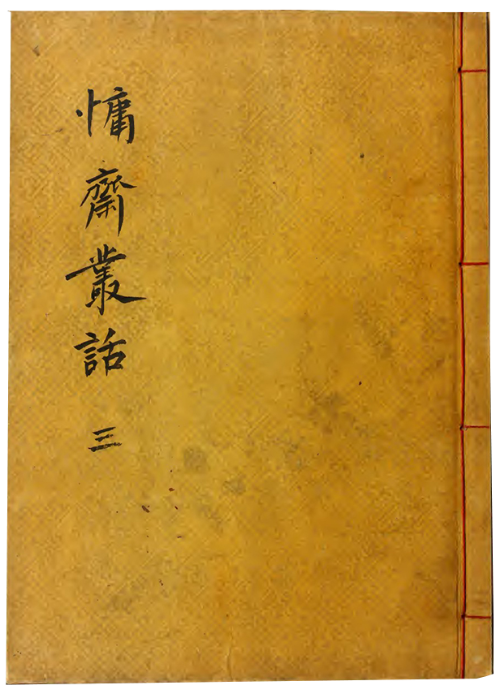 慵齋叢話 三